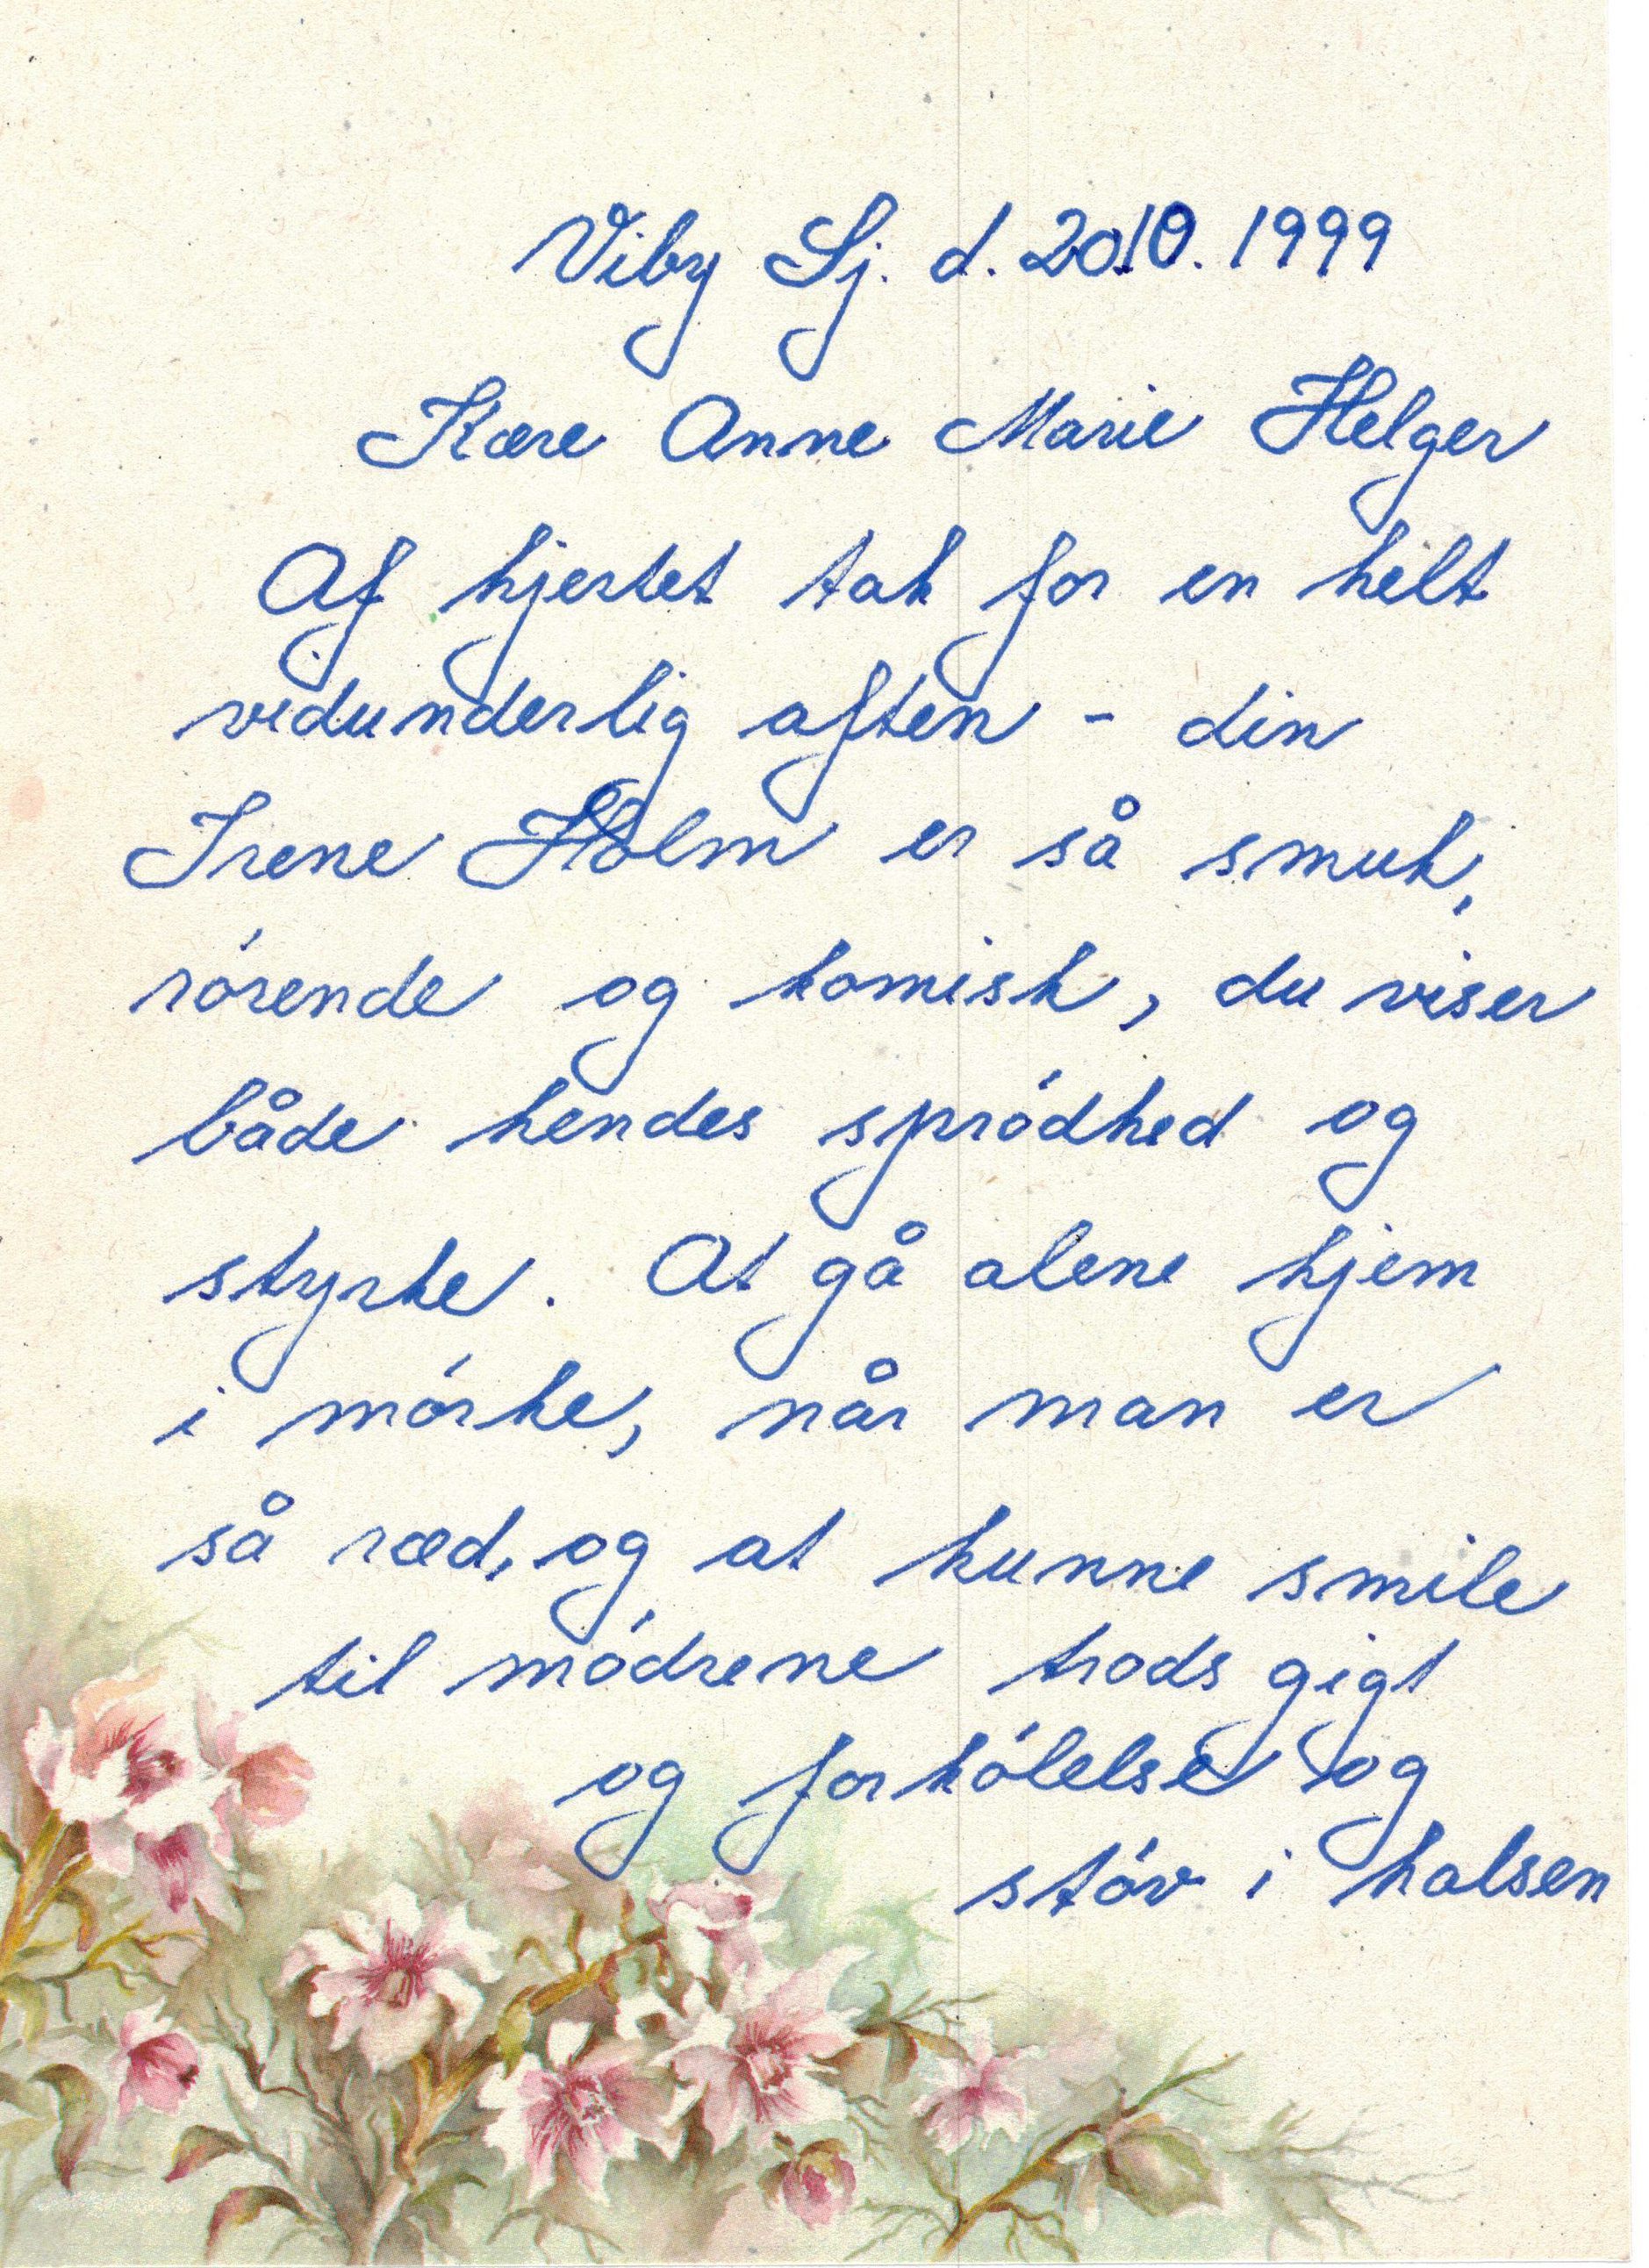 Viby Sj. d. 20.10.1999
Kære Anne Marie Helger
Af hjertet tak for en helt
vidunderlig aften - din
Irene Holm er så smuk,
rørende og komisk, du viser
både hendes sprødhed og
styrke. At gå alene hjem
i mørke, når man er
så ræd, og at kunne smile
til mødrene trods gigt
og forkølelse og
støv i halsen